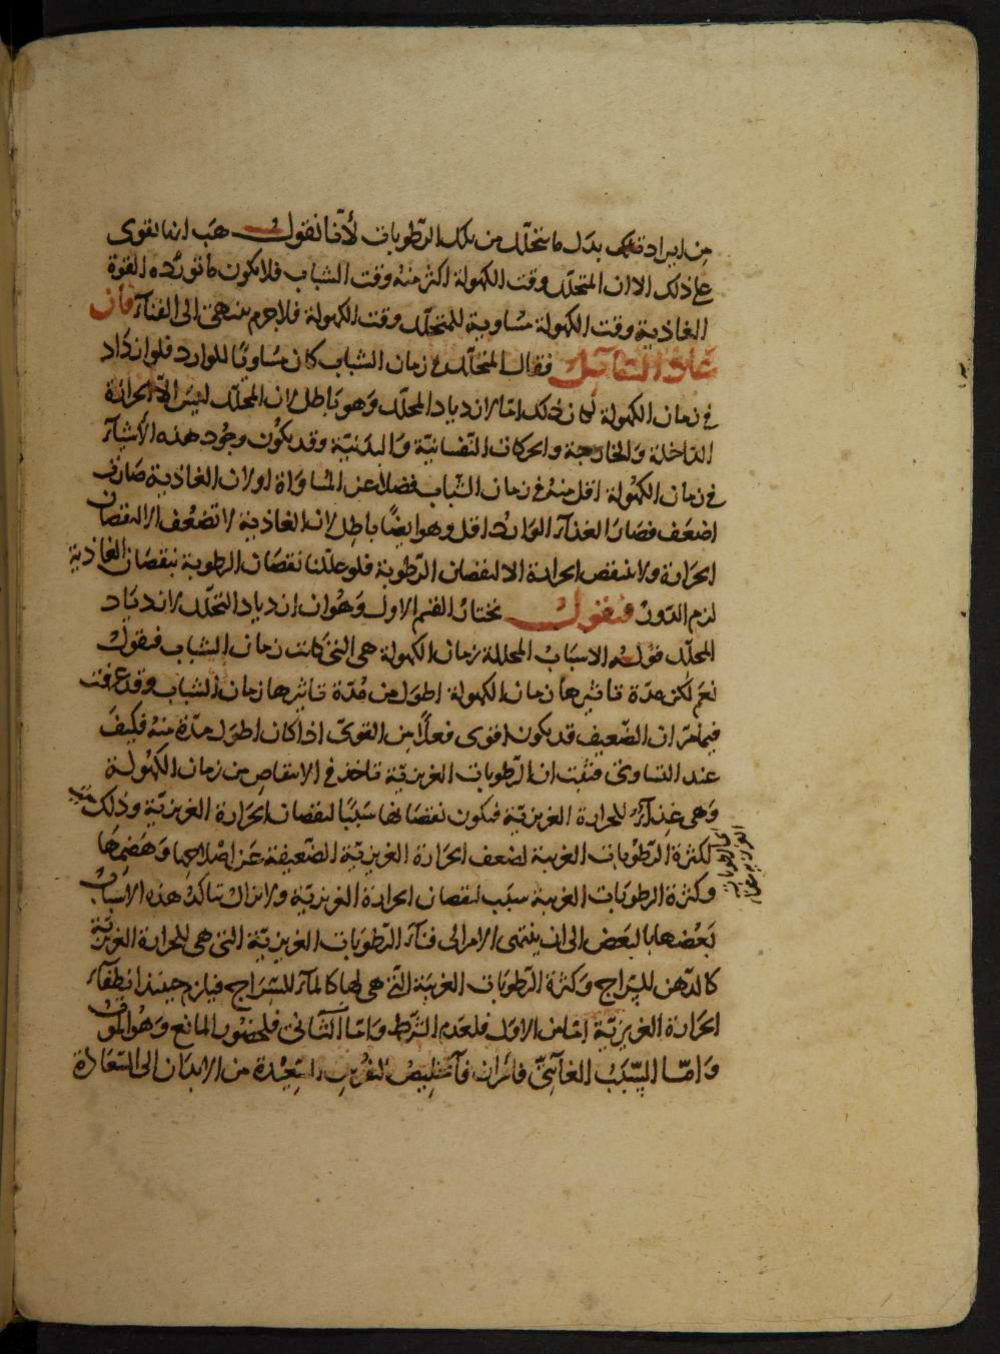 من ايراد بدل ما يتحلل من تلك الرطوبات لأنا نقول هب انها تقوى
على ذلك الا ان المتحلل وقت الكهولة اكثر منه وقت الشباب فلا يكون ما تورده القوة
الغاذية وقت الكهولة مساوية للمتحلل وقت الكهولة فلا جرم ينتهى الى الفناء فان
عاد السائل فقال المتحلل فى زمان الشباب كان مساويًا للوارد فلو ازداد
فى زمان الكهولة لكان ذلك اما لازدياد المحلل وهو باطل لان المحلل ليس الا الحرارة
الداخلة والخارجة والحركات النفسانية والبدنية وقد يكون وجود هذه الاشياء
فى زمان الكهولة اقل منه فى زمان الشباب فضلا عن المساواة او لان الغاذية صارت
اضعف فصار الغذاء الوارد اقل وهو ايضًا باطل لان الغاذية لا تضعف الا لنقصان
الحرارة ولا ينقص الحرارة الا لنقصان الرطوبة فلو عللنا نقصان الرطوبة بنقصان الغاذية
لزم الدور فنقول نختار القسم الاول وهو ان ازدياد التحلل لازدياد
المحلل قوله الاسباب المحللة زمان الكهولة هى التى كانت زمان الشباب فنقول
نعم لكن مدة تاثيرها زمان الكهولة اطول من مدة تاثيرها زمان الشباب وقد عرفت
فيما مر ان الضعيف قد يكون اقوى فعلًا من القوى اذا كان اطول مدة منه فكيف
عند التساوى فثبت ان الرطوبات الغريزية تاخذ فى الانتقاص من زمان الكهولة
وهى غذاء للحرارة الغريزية فيكون نقصانها سببًا لنقصان الحرارة الغريزية وذلك
لكثرة الرطوبات الغريبة لضعف الحرارة الغريزية الضعيفة عن اصلاحها وهضمها
وكثرة الرطوبات الغريبة سبب لنقصان الحرارة الغريزية ولا يزال يتاكد هذه الاسباب
بعضها بالبعض الى ان ينتهى الامر الى فناء الرطوبات الغريزية التى هى للحرارة الغريزية
كالدهن للسراج وكثرة الرطوبات الغريبة التى هى لها كالماء للسراج فيلزم حينئذ انطفاء
الحرارة الغريزية اما من الاول فلعدم الشرط واما الثانى فلحضور المانع وهو الموت
واما السبب الغائى فامران فآ تخليص النفوس السعيدة من الابدان الى السعادة